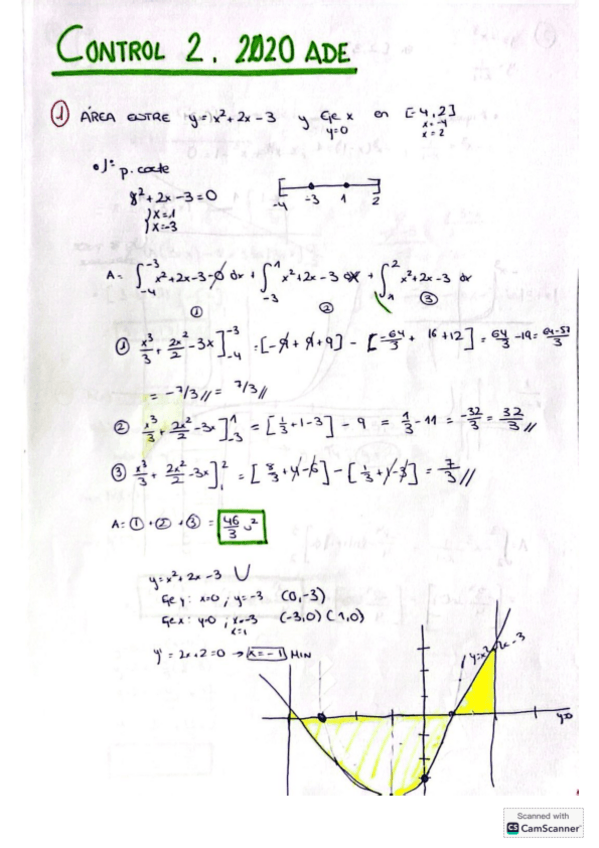 CONTROL 2. 2020 ADE
① ÁREA ENTRE y = x²+2x-3 y eje x en [-4,2]
y=0 x=-4
x=2
p. corte
x²+2x-3=0
x=1
x=-3
-4 -3 1 2
A= ∫₋₄⁻³ x²+2x-3-0 dx + ∫₋₃¹ x²+2x-3 dx + ∫₁² x²+2x-3 dx
① ② ③
① x³/3 + 2x²/2 -3x]₋₄⁻³ = [-9+9+9] - [-64/3 + 16+12] = 64/3 -19 = 64-57/3
= -7/3// = 7/3//
② x³/3 + 2x²/2 -3x]₋₃¹ = [1/3+1-3] - 9 = 1/3-11 = -32/3 = 32/3//
③ x³/3 + 2x²/2 -3x]₁² = [8/3+4-6] - [1/3+1-3] = 7/3//
A= ①+②+③ = 46/3 u²
y=x²+2x-3 ∪
Eje y: x=0; y=-3 (0,-3)
Eje x: y=0; x=-3 (-3,0) (1,0)
x=1
y' = 2x+2=0 → x=-1 MIN
y=x²+2x-3
y=0
Scanned with
CS CamScanner